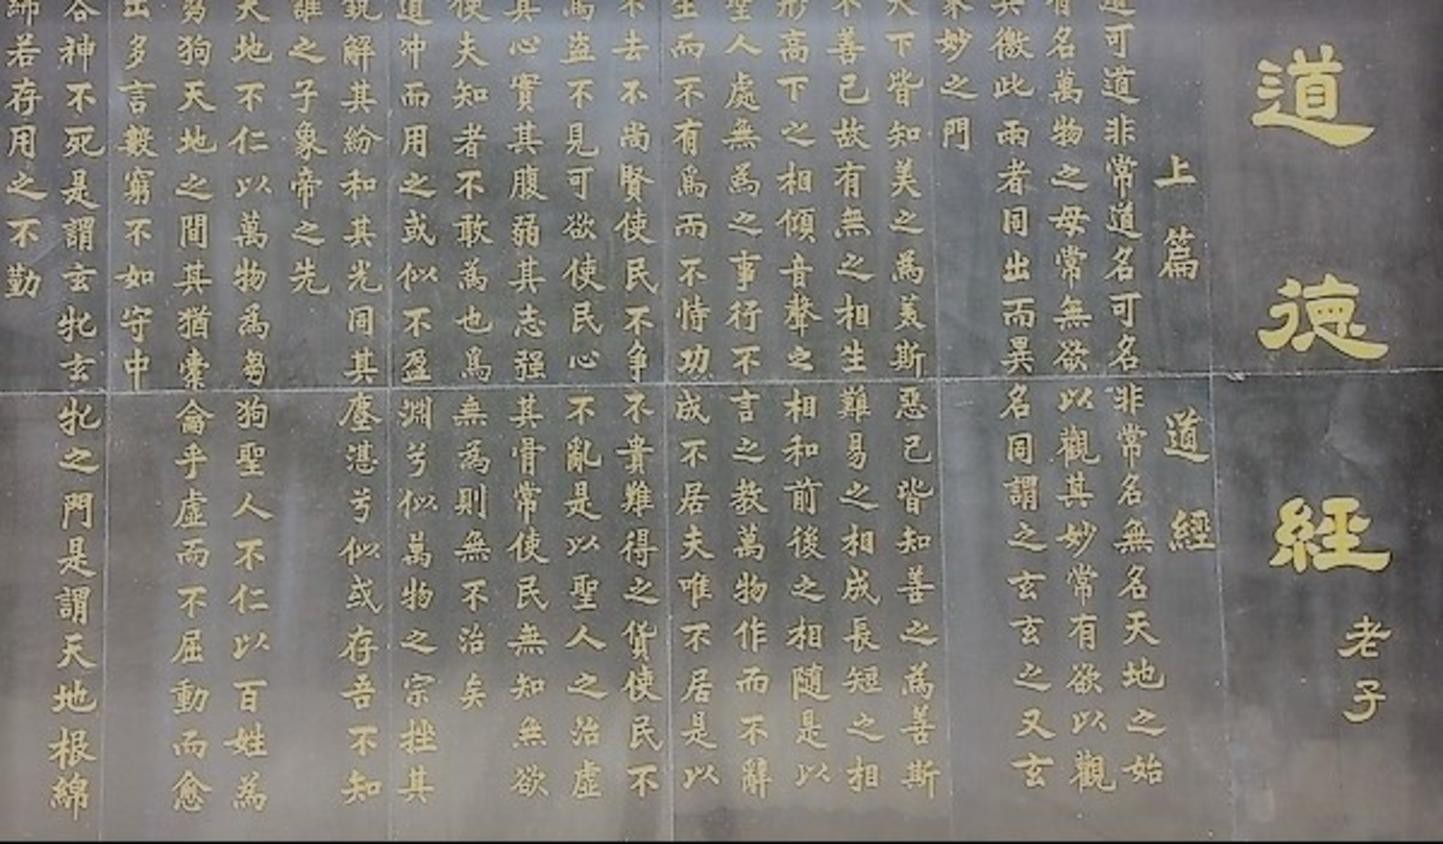 道德經
老子
上篇 道經
道可道非常道名可名非常名無名天地之始
有名萬物之母常無欲以觀其妙常有欲以觀
其徼此兩者同出而異名同謂之玄玄之又玄
眾妙之門
天下皆知美之為美斯惡已皆知善之為善斯
不善已故有無之相生難易之相成長短之相
形高下之相傾音聲之相和前後之相隨是以
聖人處無為之事行不言之教萬物作而不辭
生而不有為而不恃功成不居夫唯不居是以
不去不尚賢使民不争不貴難得之貨使民不
為盜不見可欲使民心不亂是以聖人之治虛
其心實其腹弱其志强其骨常使民無知無欲
使夫知者不敢為也為無為則無不治矣
道沖而用之或似不盈淵兮似萬物之宗挫其
銳解其紛和其光同其塵湛兮似或存吾不知
誰之子象帝之先
天地不仁以萬物為芻狗聖人不仁以百姓為
芻狗天地之間其猶橐龠乎虛而不屈動而愈
出多言數窮不如守中
谷神不死是謂玄牝玄牝之門是謂天地根綿
綿若存用之不勤